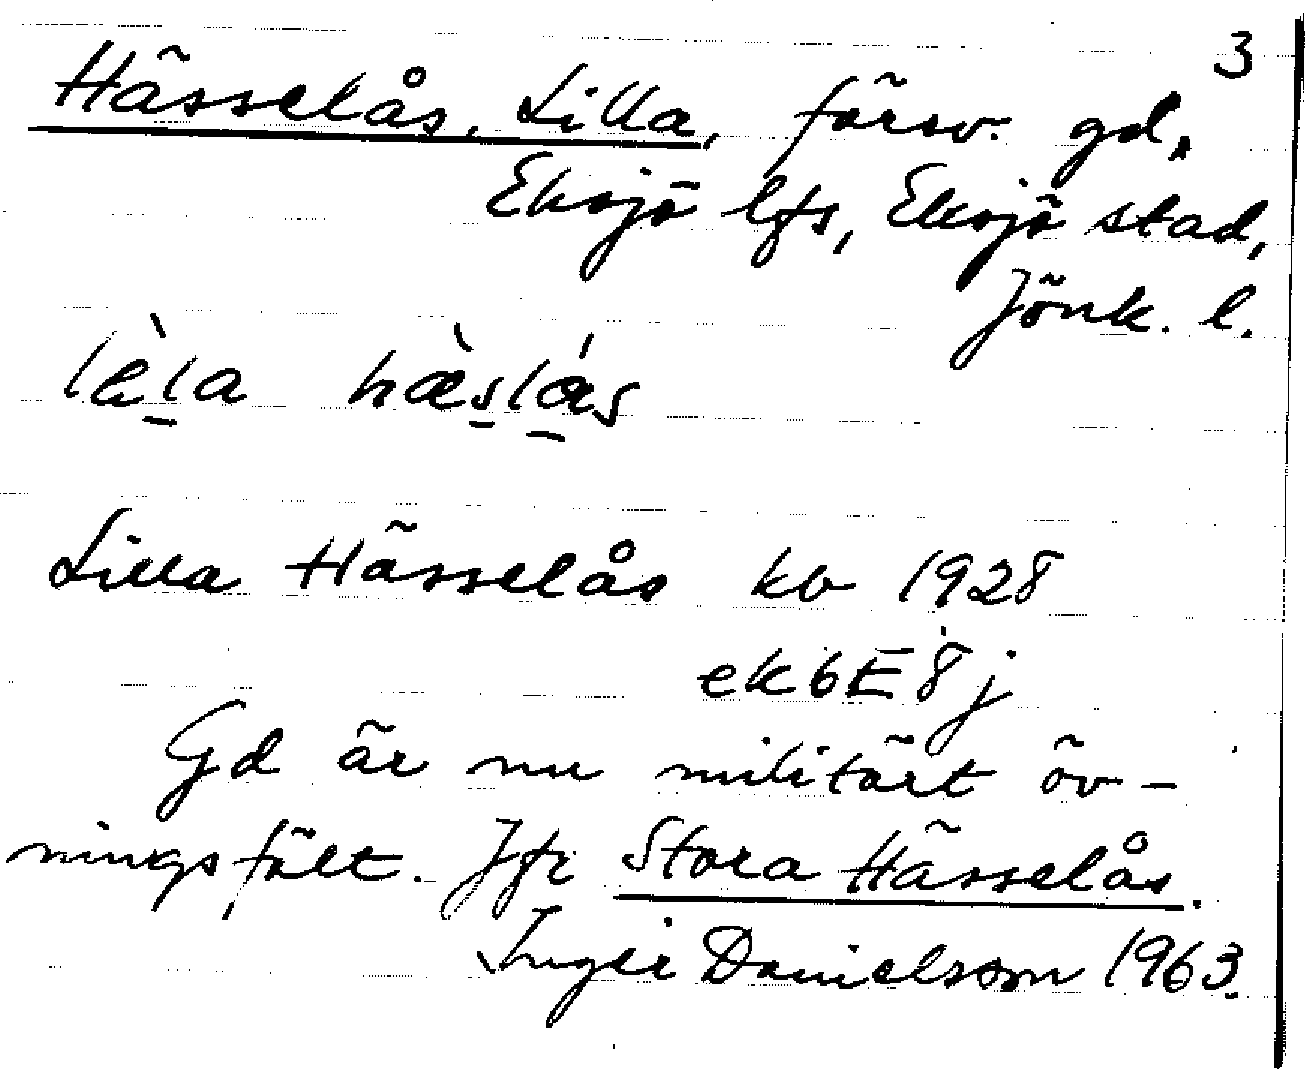 3
Hässelås, Lilla, försv. gd,
Eksjö lfs, Eksjö stad,
Jönk. l.
Lilla Hässelås kb 1928
ek 6E8j
Gd är nu militärt öv-
ningsfält. Jfr Stora Hässelås.
Inger Danielsson 1963.